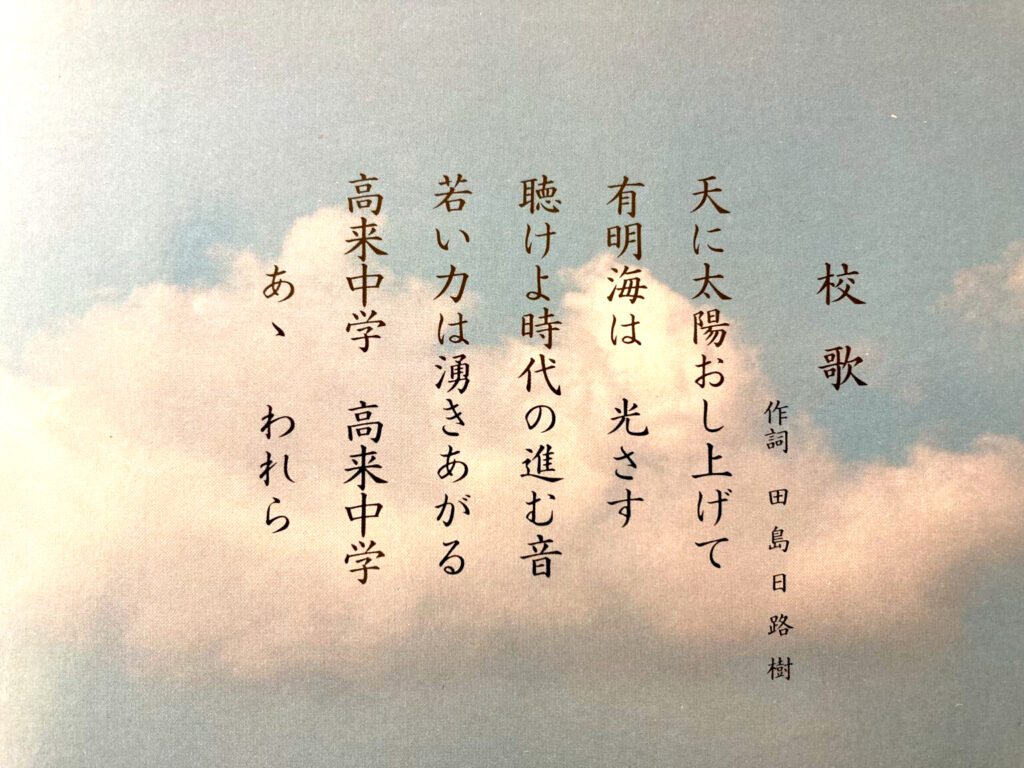 校歌
作詞 田島日路樹
天に太陽おし上げて
有明海は 光さす
聴けよ時代の進む音
若い力は湧きあがる
高来中学 高来中学
あゝ われら